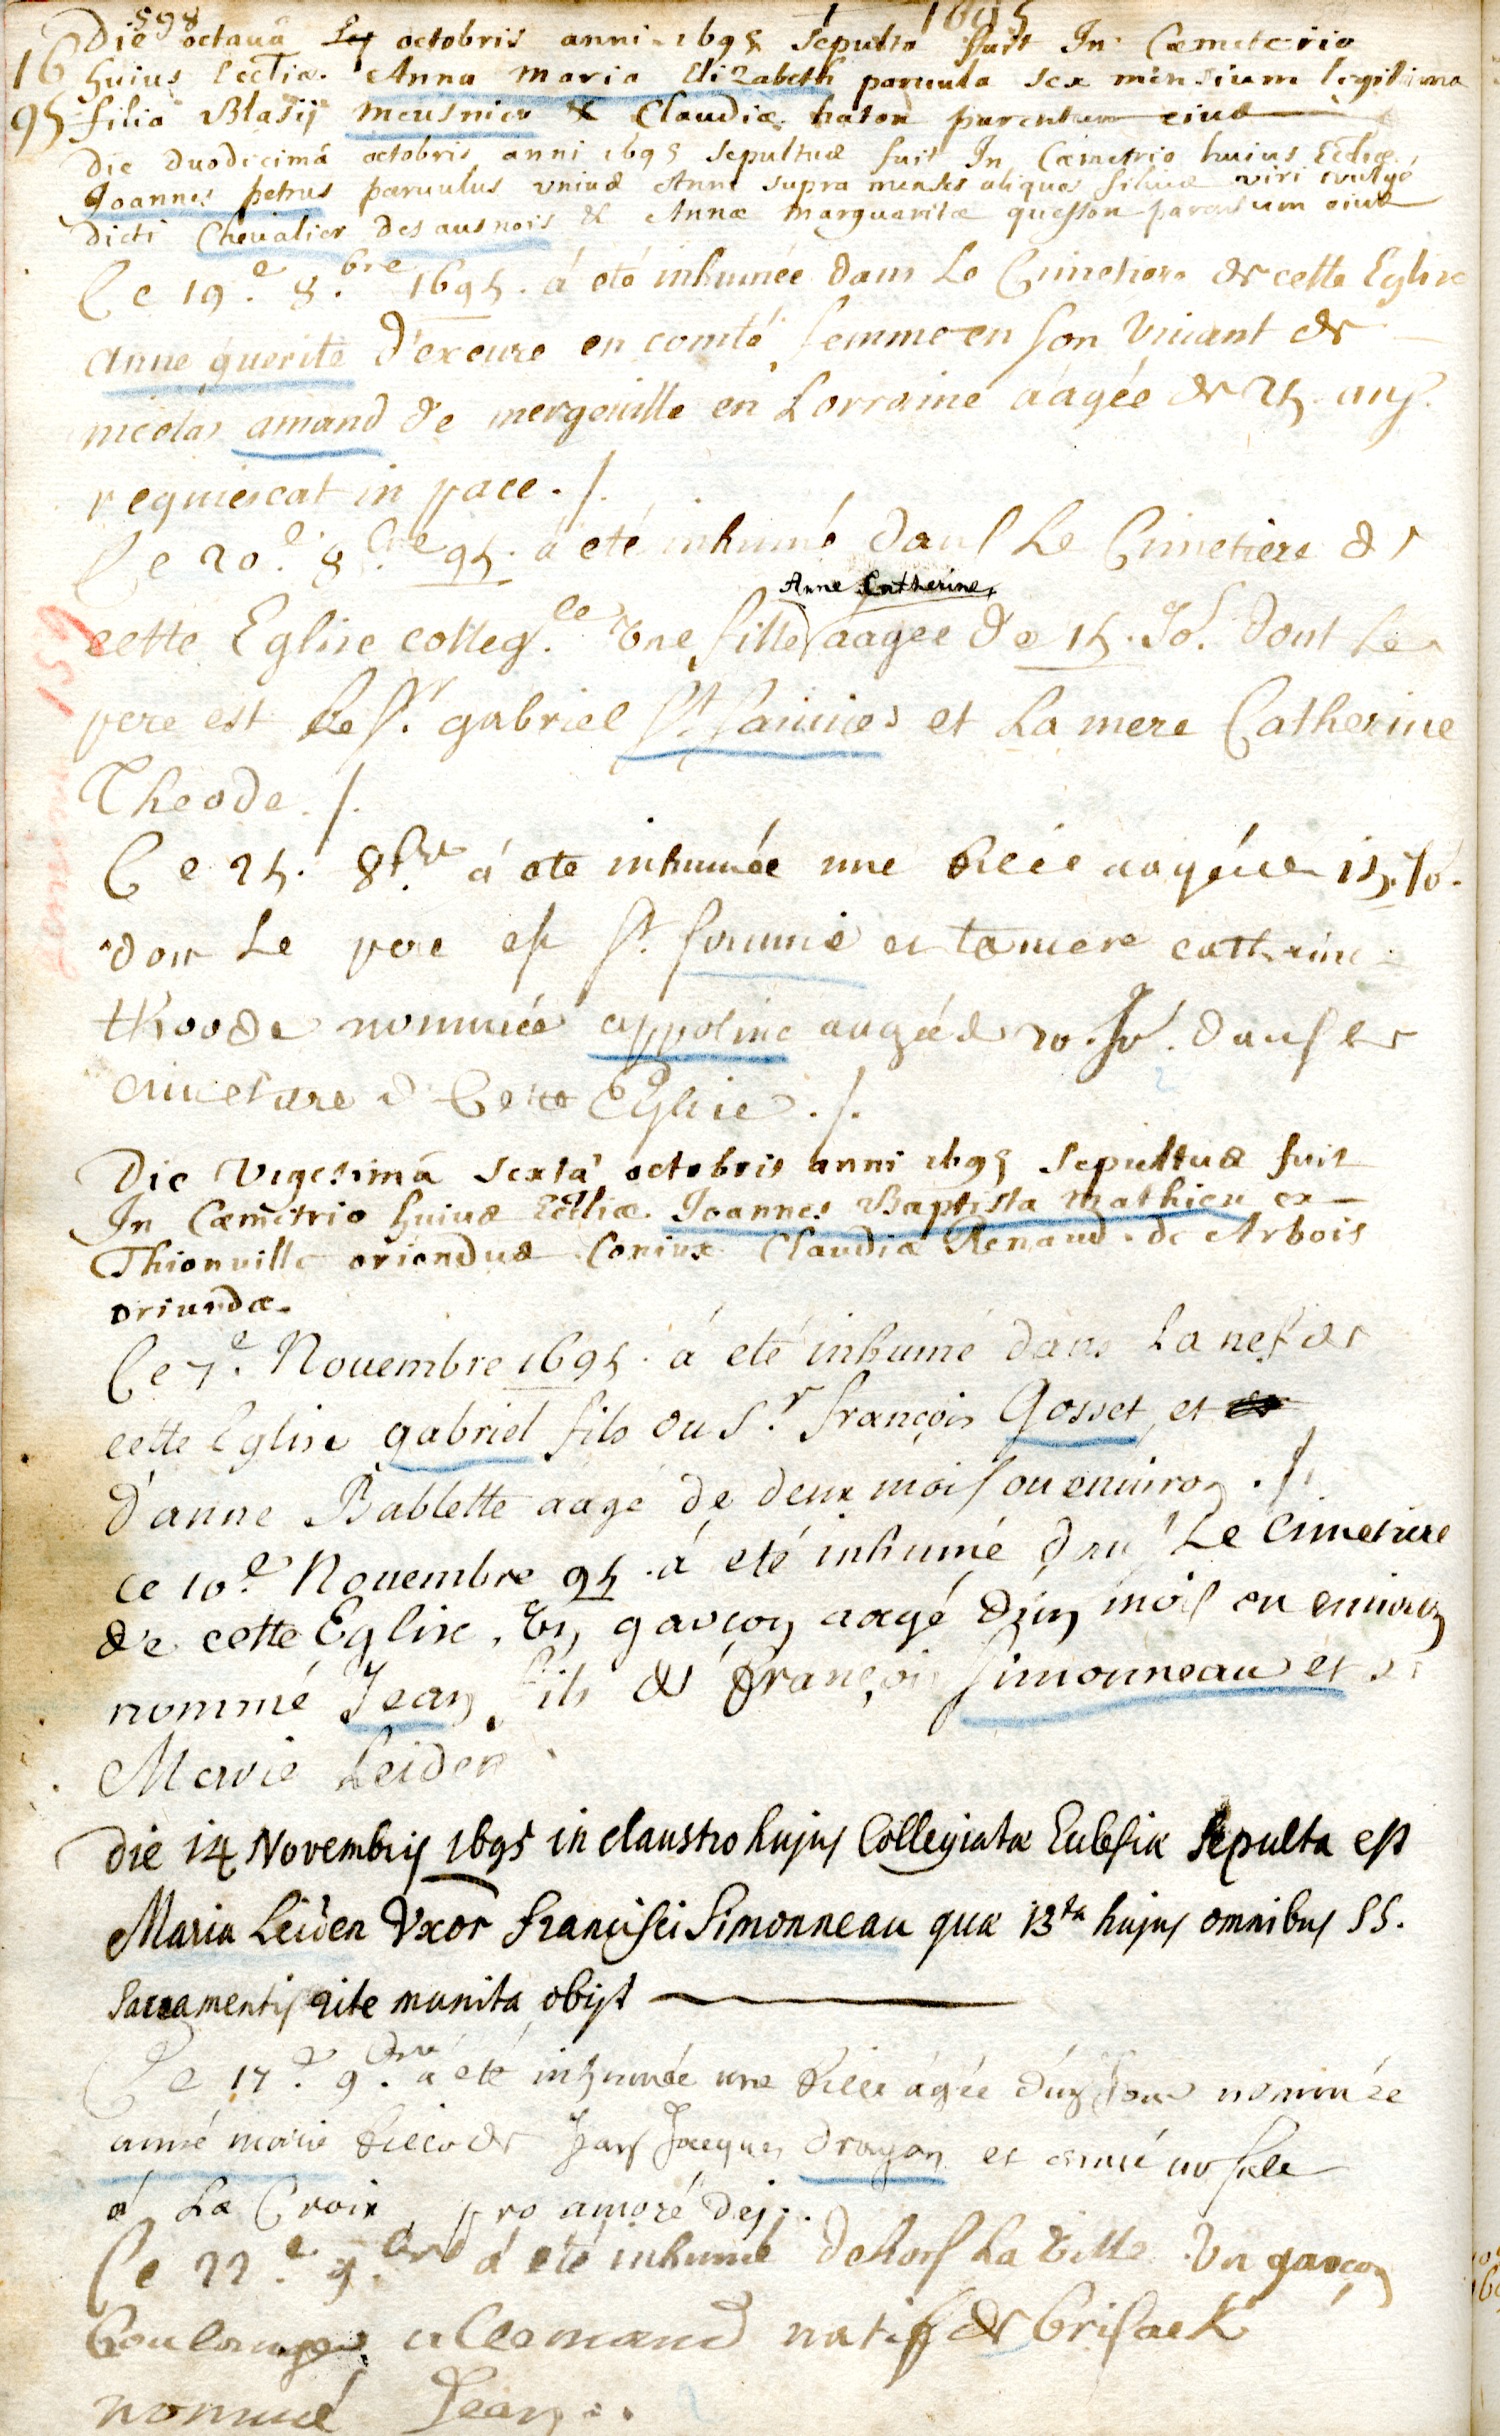 598 1695
Die octauâ octobris anni 1695 sepulta fuit In Cœmeterio
16 huius Eccliæ Anna Maria Elizabeth paruula sex mensium legitima
95 filia Blasij Meusnier & Claudiæ haton parentum eius
Die duodecimâ octobris anni 1695 sepultus fuit In Cœmetrio huius Eccliæ
Joannes petrus paruulus unius Anni supra menses aliquos filius viri vulgo
dicti Chevalier des ausnois & Annæ Marguaritæ questson parentum eius
Ce 19.e 8.bre 1695. á eté inhumée dans Le Cimetiere de cette Eglise
anne querite d'exeure en comté femme en son viuant de
nicolas amand de mergeuille en Lorraine áagée de 25. ans.
requiescat in pace ./.
Ce 20.e 8.bre 95. á eté inhumé dans Le Cimetiere de
Anne Catherine
cette Eglise colleg.le Vne fille aagee de 15. Jo.rs dont Le
pere est Le Sr. gabriel St. Jannies et La mere Catherine
Theode ./.
Ce 25. 8bre á ete inhumée une fille aagée de 15. Jo.
don Le pere est St. et la mere catherine
theode nommée appoline aagée de 20. Jo. dans le
cimetiere de Cette Eglise ./.
Die vigesimâ sextâ octobris anni 1695 sepultus fuit
In Cœmetrio huius Eccliæ Joannes Baptista Mathieu ex
Thionuille oriendus Coniux Claudiæ Renaud de Arbois
oriundæ
Ce 7.e Nouembre 1695. á eté inhumé dans La nef de
cette Eglise gabriel fils du Sr. françois Gosset et
d'anne Bablette áagé de deux mois ou enuiron ./.
ce 10.e Nouembre 95. á eté inhumé dans Le Cimetiere
de cette Eglise, Vn garcon aagé d'un mois ou enuiron
nommé Jean fils de françois Simonneau et de
Marie Leiden
Die 14 Novembris 1695 in claustro hujus Collegiatæ Ecclesiæ sepulta est
Maria Leiden Vxor Francisci Simonneau quæ 13ta hujus omnibus SS.
Sacramentis rite munita obijt
Ce 17.e 9.bre á eté inhumée une fille ágée d'un Jour nommée
anne marie fille de Jean Jacques dragon et
á La Croix, pro amore dei.
Ce 22.e 9.bre á eté inhumé dehors La Ville Vn garcon
boulanger allemand natif de brisack
nommé Jean.